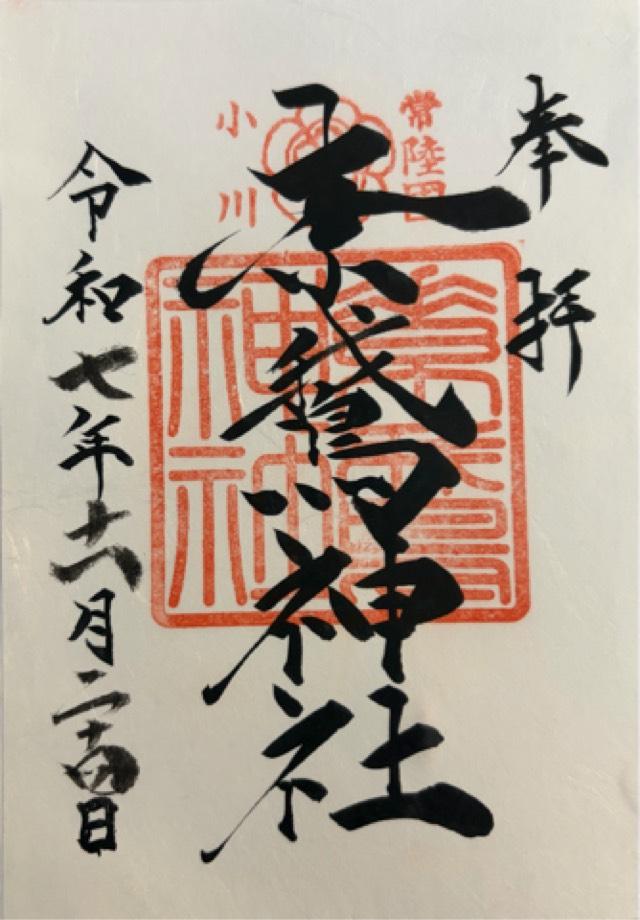 奉拝
常陸国
小川
素鵞神社
素鵞
神社
令和七年
月二十四日